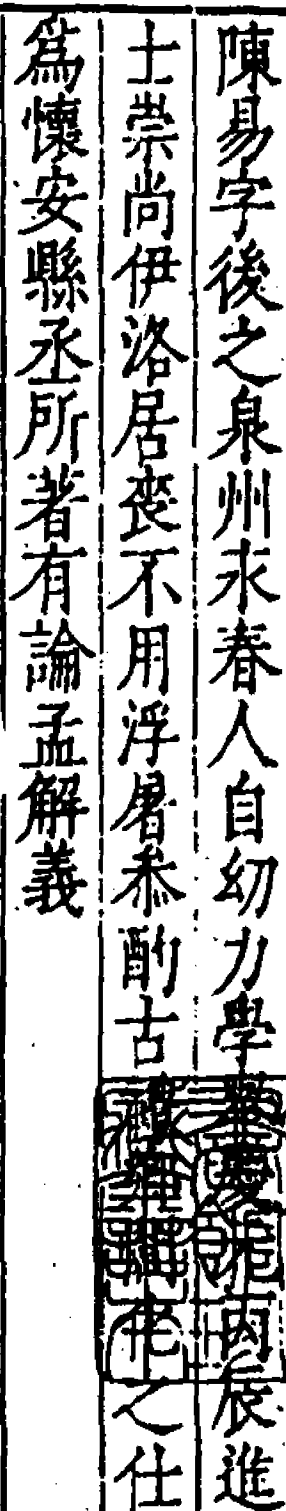 陳易字後之泉州永春人自幼力學登慶元丙辰進
士崇尚伊洛居喪不用浮屠叅酌古禮鄉閭化之仕
爲懷安縣丞所著有論孟解義